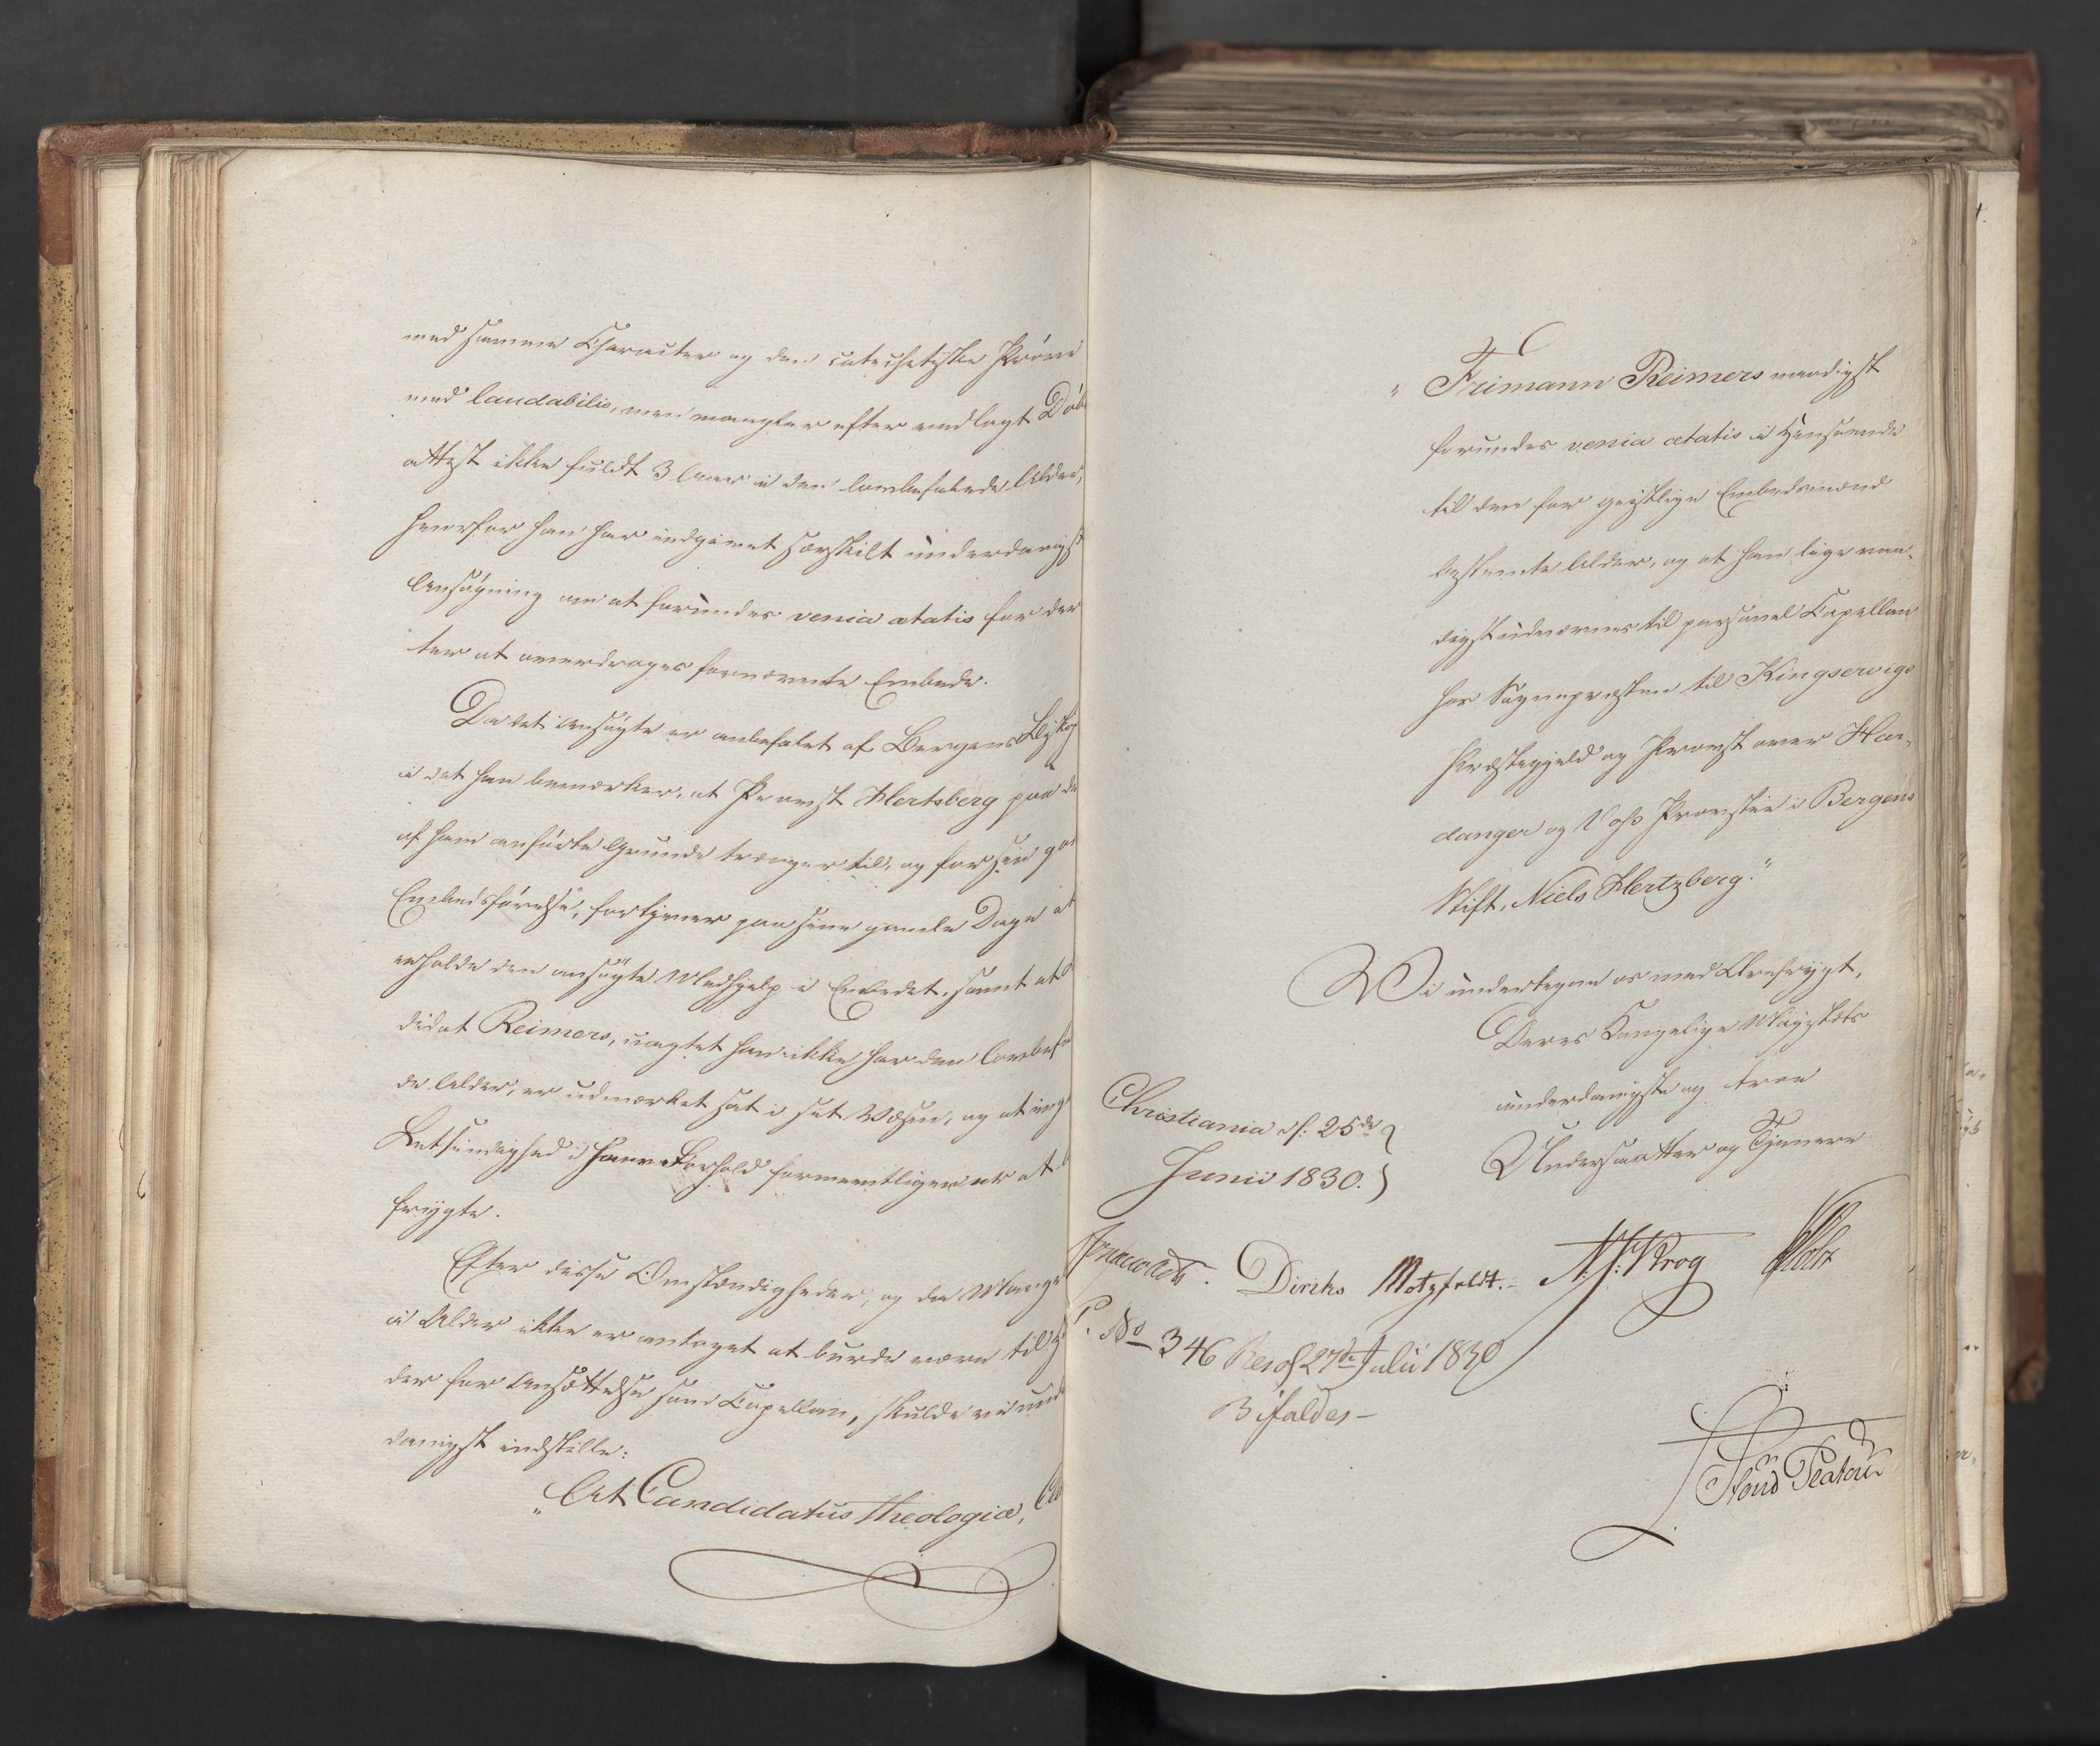 med samme Character og den catechetiske Prøve
med laudabilis, men mangler efter vedlagt Døbe
attest ikke fuldt 3 Aar i den lovbefalede Alder,
hvorfor han har indgivet særskilt underdanigst
Ansøgning om at forundes venia ætatis for der
ter at overdrages fornævnte Embede.
Da det Ansøgte er anbefalet af Bergens Biskop
i det han bemærker, at Provst Hertsberg paa de
af ham anførte Grunde trænger til, og for sin god
Embedsførelse, fortjener paa sine gamle Dage at
erholde den ansøgte Medhjelp i Embedet, samt at
didat Reimers, uagtet han ikke har den lovbefa
de Alder, er udmærket sat i sit Væsen, og at inge
Letsindighed i hans Forhold formeentligen er at b
frygte.
Efter disse Omstændigheder, og da Mangel
i Alder ikke er antaget at burde være til H
der for Ansættelse som Capellan, skulde vi und
danigst indstille:
"At Candidatus Theologiæ,
" Frimann Reimers naadigst
forundes venia ætatis i Henseende
til den for geistlige Embedsmænd
bestemte Alder, og at han lige naa-
digst udnævnes til personel Capellan
hos Sognepræsten til Kingservigs
Præstegjeld og Provst over Har-
danger og Voss Provstie i Bergens
Stift, Niels Hertzberg."
Vi undertegne os med Ærefrygt,
Deres Kongelige Majestæts
underdanigste og troe
Undersaatter og Tjenere
Christiania d: 25de
Junii 1830.
Diriks Motzfeldt. Krog Holst
P. No 346 Resol 27de Julii 1830
Bifaldes –